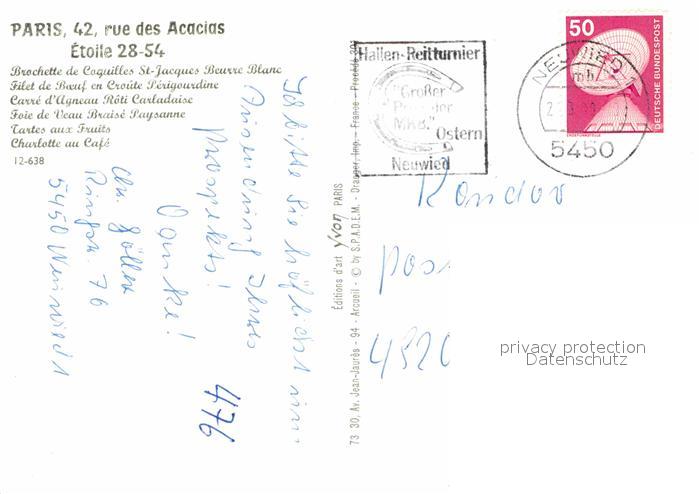 PARIS, 42, rue des Acacias
Étoile 28-54
Brochette de Coquilles St-Jacques Beurre Blanc
Filet de Bœuf en Croûte Périgourdine
Carré d'Agneau Rôti Carladaise
Foie de Veau Braisé Paysanne
Tartes aux Fruits
Charlotte au Café
12-638
Ich bitte Sie höflichst um
Zusendung Ihres
Prospekts!
Danke!
Ringstr. 76
5450 Neuwied 1
476
73 30, Av. Jean-Jaurès - 94 - Arcueil - © by S.P.A.D.E.M. - Draeger, Imp. - France - Procédé 301
Éditions d'art yvon PARIS
Hallen-Reitturnier
"Großer
Preis der
Ostern
Neuwied
NEUWIED 1
mb
5450
50
DEUTSCHE BUNDESPOST
Kondor
Pos
4320
privacy protection
Datenschutz